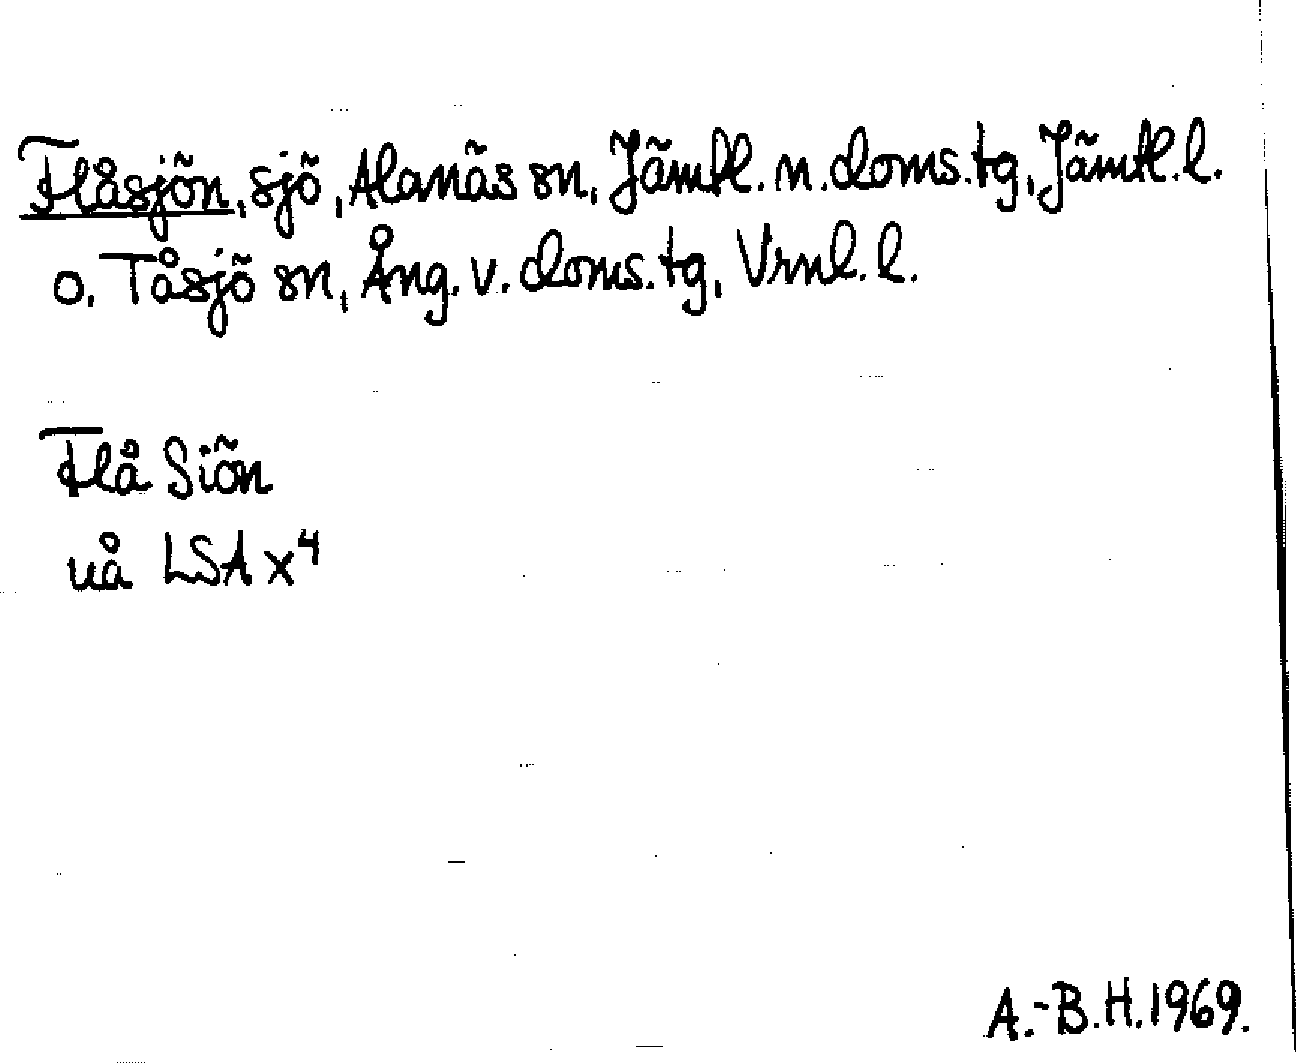 Flåsjön, sjö, Alanäs sn, Jämtl. n. doms. tg, Jämtl. l.
o. Tåsjö sn, Ång. v. doms. tg, Vrnl. l.
Flå Siön
uå LSA x⁴
A.-B.H. 1969.